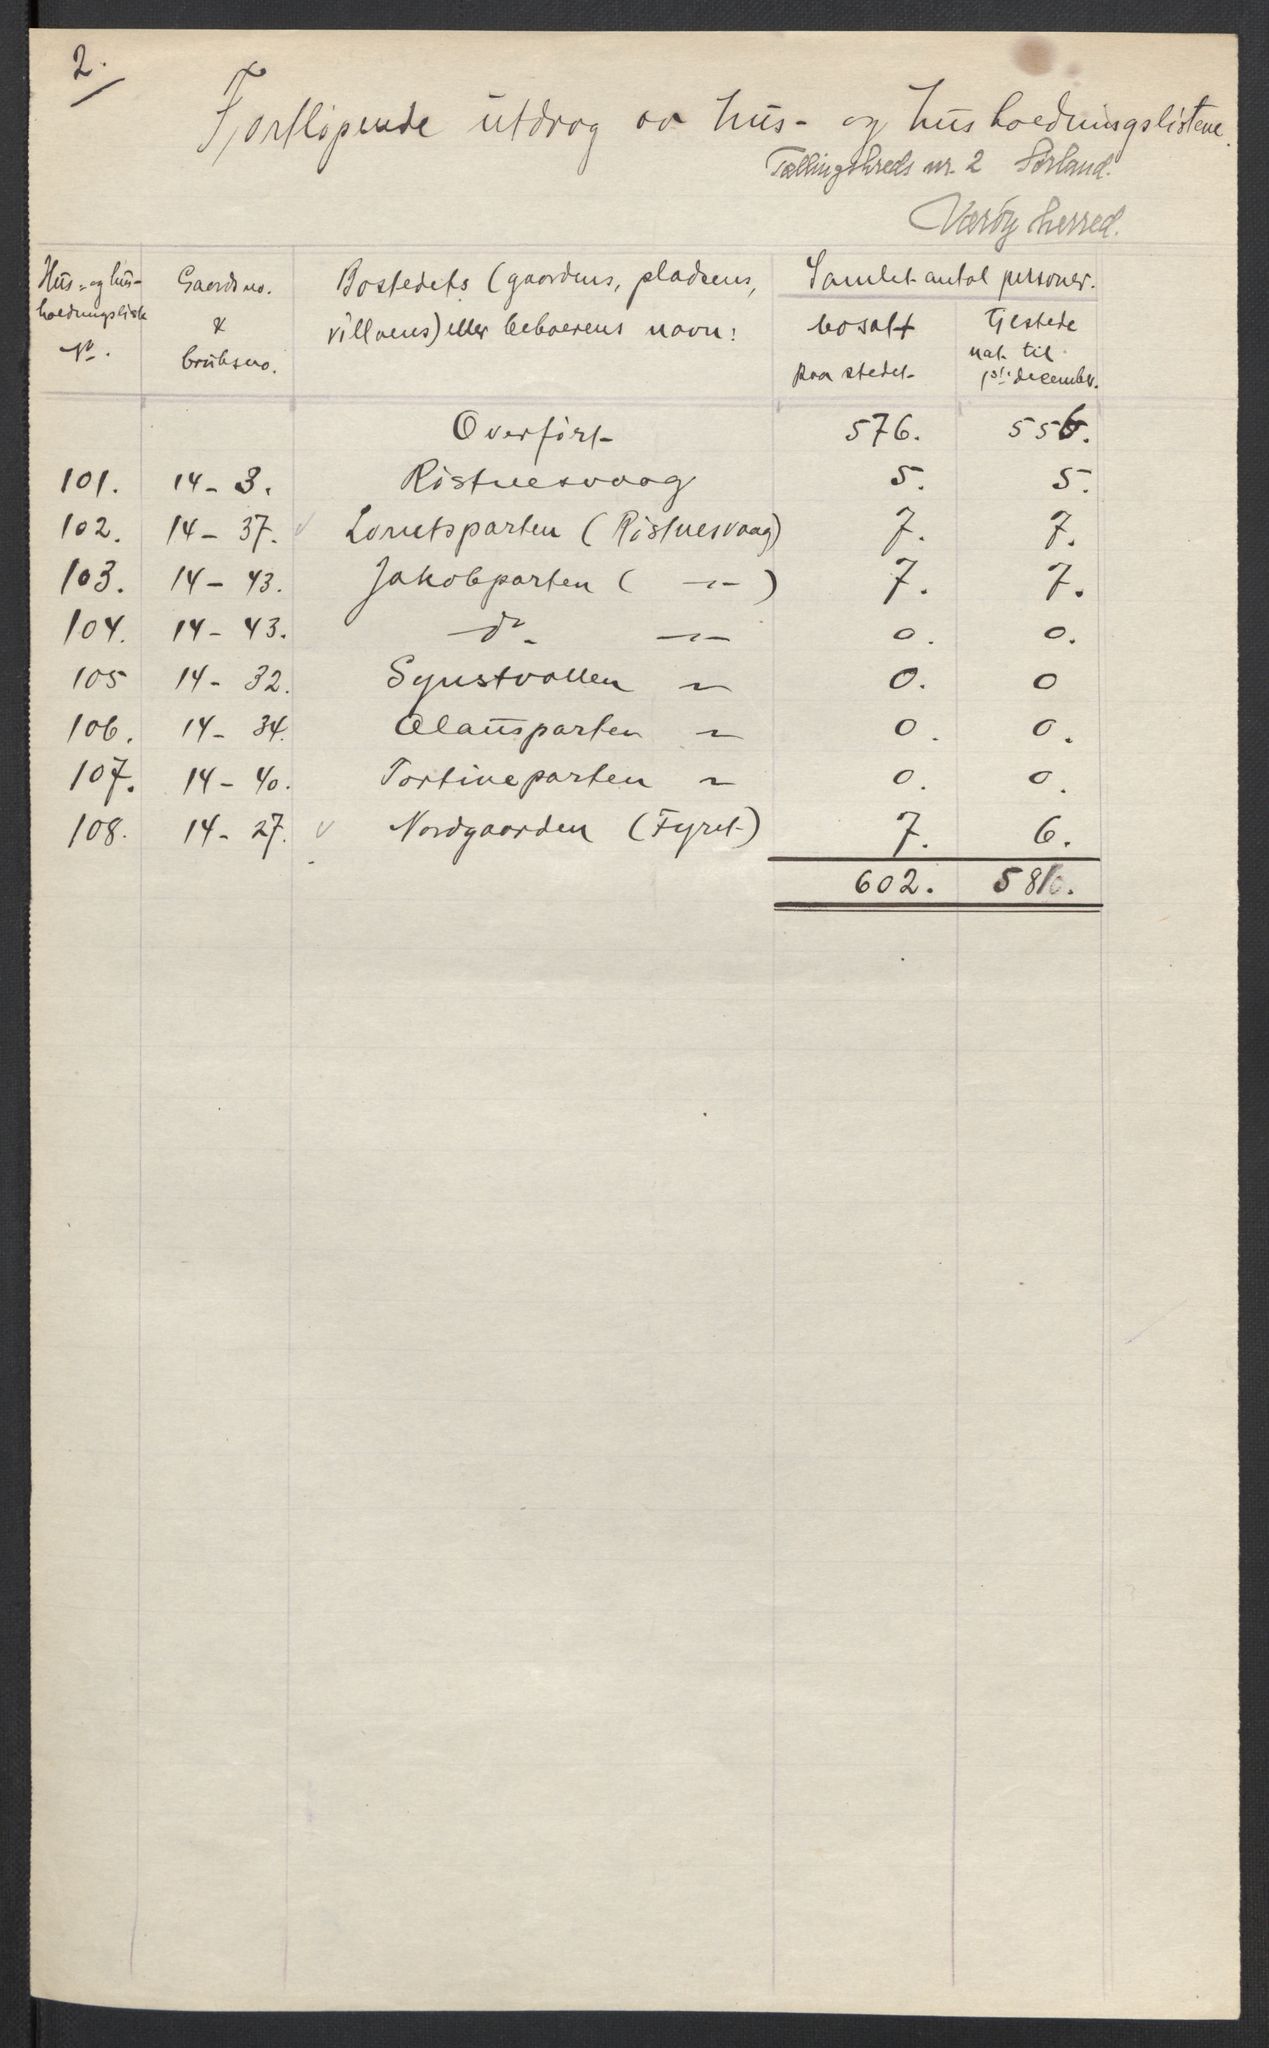 2.
Fortløpende utdrag av hus- og husholdningslistene.
Tællingskreds nr. 2 Sørland.
Værøy herred.
Hus- og hus- Gaards no. Bostedets (gaardens, pladsens, Samlet antal personer.
holdningsliste & villaens) eller beboerens navn: bosatt tilstede
No. bruksno. paa stedet nat til
1ste december.
Overført 576. 556.
101. 14 - 3. Røstnesvaag 5. 5.
102. 14 - 37. v (Røstnesvaag) 7. 7.
103. 14 - 43. Jakobparten ( -"- ) 7. 7.
104. 14 - 43. do -"- 0. 0.
105 14 - 32. Synstvollen " 0. 0
106. 14 - 34. Olausparten " 0. 0.
107. 14 - 40. Tortineparten " 0. 0.
108. 14 - 27. v Nordgaarden (Fyret) 7. 6.
602. 581.